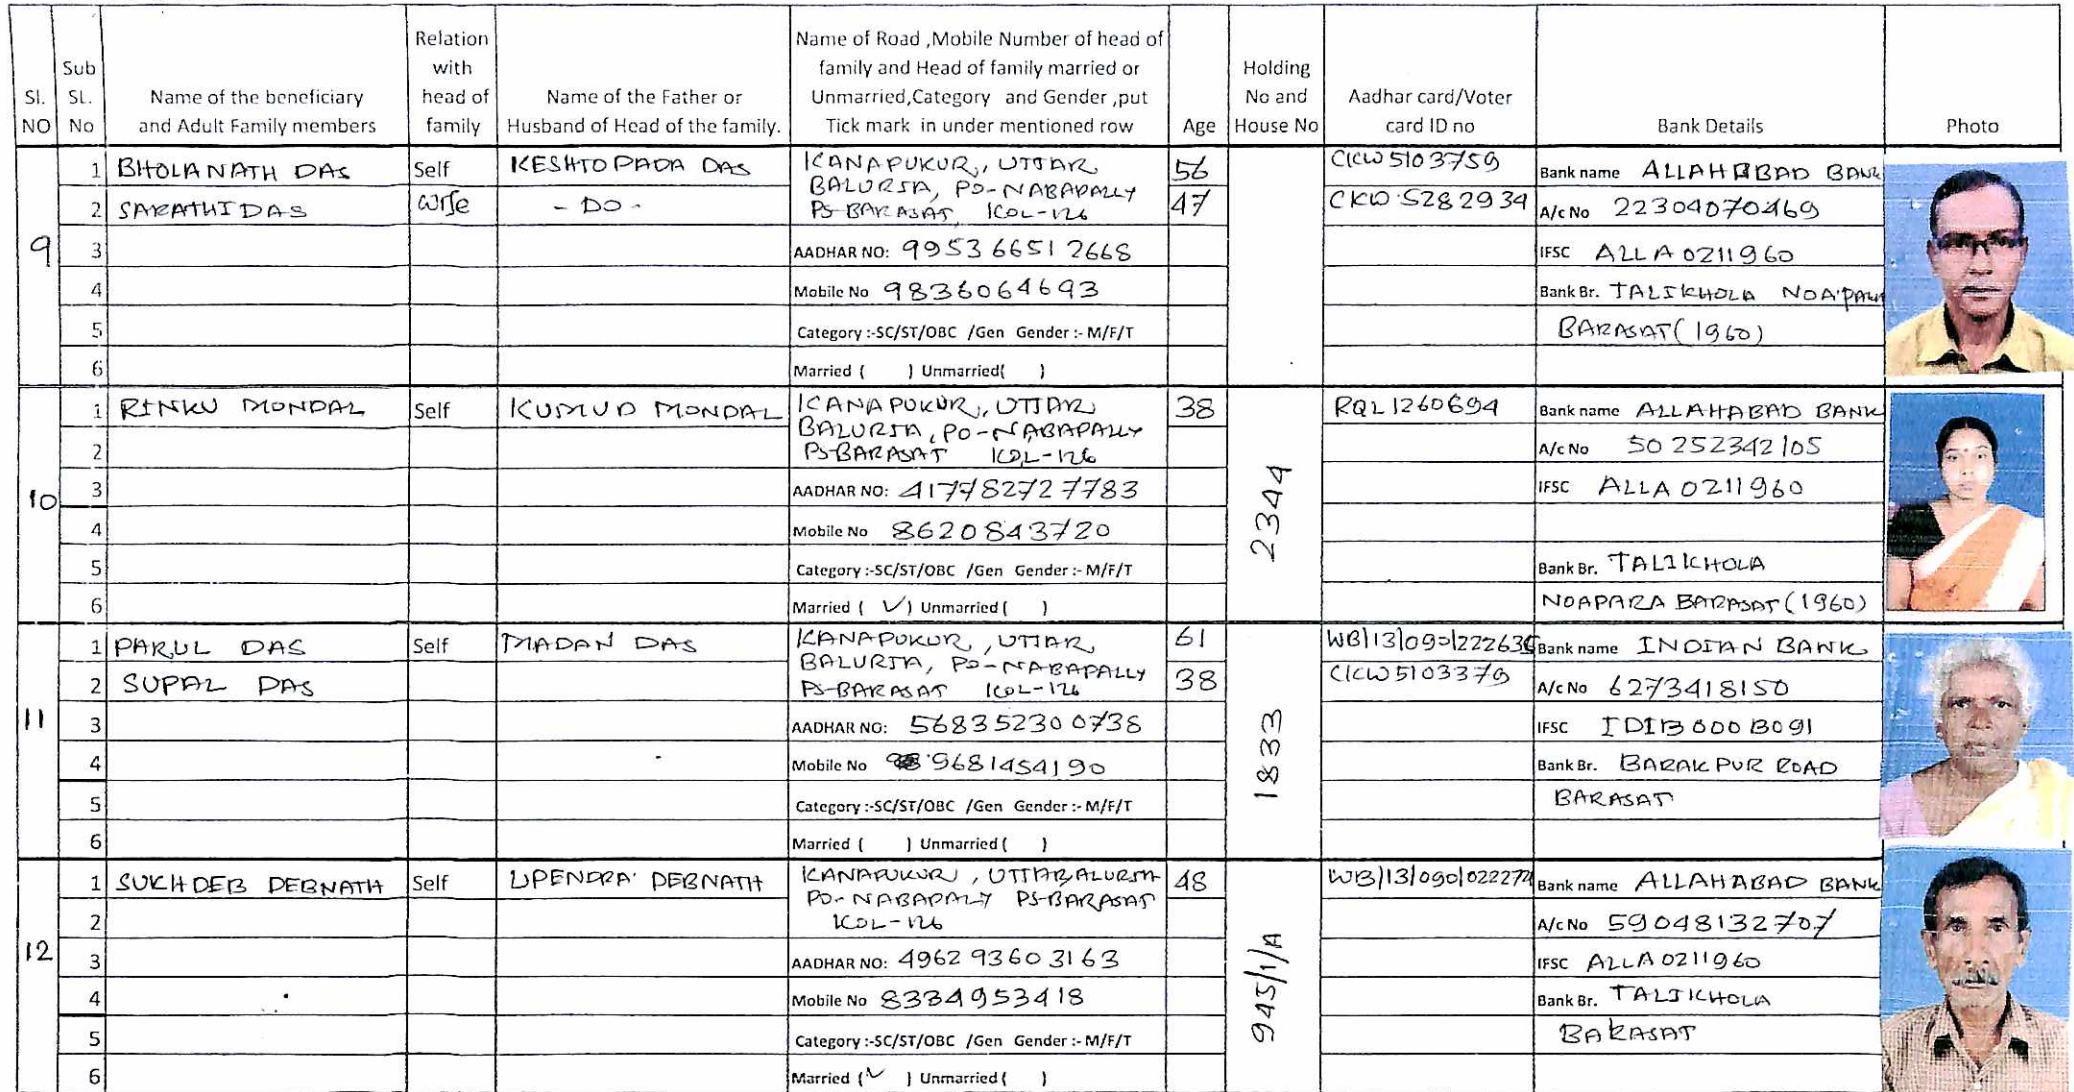 Sl. NO | Sub SL. No | Name of the beneficiary and Adult Family members | Relation with head of family | Name of the Father or Husband of Head of the family. | Name of Road ,Mobile Number of head of family and Head of family married or Unmarried,Category and Gender ,put Tick mark in under mentioned row | Age | Holding No and House No | Aadhar card/Voter card ID no | Bank Details | Photo
9
1 BHOLANATH DAS Self KESHTOPADA DAS KANAPUKUR, UTTAR 56 CKW5103759 Bank name ALLAHABAD BANK
2 SARATHI DAS wife - DO - BALURIA, PO-NABAPALLY PS-BARASAT, KOL-126 47 CKW5282934 A/c No 22304070469
3 AADHAR NO: 9953 6651 2668 IFSC ALLA0211960
4 Mobile No 9836064693 Bank Br. TALIKHOLA
5 Category :-SC/ST/OBC /Gen Gender :- M/F/T BARASAT(1960)
6 Married ( ) Unmarried( )
10
2344
1 RINKU MONDAL Self KUMUD MONDAL KANAPUKUR, UTTAR 38 RQL1260694 Bank name ALLAHABAD BANK
2 BALURIA, PO-NABAPALLY PS-BARASAT KOL-126 A/c No 50252342105
3 AADHAR NO: 417782727783 IFSC ALLA0211960
4 Mobile No 8620843720
5 Category :-SC/ST/OBC /Gen Gender :- M/F/T Bank Br. TALIKHOLA
6 Married ( ✓) Unmarried ( ) NOAPARA BARASAT(1960)
11
1833
1 PARUL DAS Self MADAN DAS KANAPUKUR, UTTAR 61 Bank name INDIAN BANK
2 SUPAL DAS BALURIA, PO-NABAPALLY PS-BARASAT KOL-126 38 CKW5103379 A/c No 6273418150
3 AADHAR NO: 568352300738 IFSC IDIB000B091
4 Mobile No 9681454190 Bank Br. BARAKPUR ROAD
5 Category :-SC/ST/OBC /Gen Gender :- M/F/T BARASAT
6 Married ( ) Unmarried ( )
12
945/1/A
1 SUKHDEB DEBNATH Self UPENDRA DEBNATH KANAPUKUR, 48 Bank name ALLAHABAD BANK
2 PO-NABAPALLY PS-BARASAT KOL-126 A/c No 59048132707
3 AADHAR NO: 4962 9360 3163 IFSC ALLA0211960
4 Mobile No 8334953418 Bank Br. TALIKHOLA
5 Category :-SC/ST/OBC /Gen Gender :- M/F/T BARASAT
6 Married (✓ ) Unmarried ( )